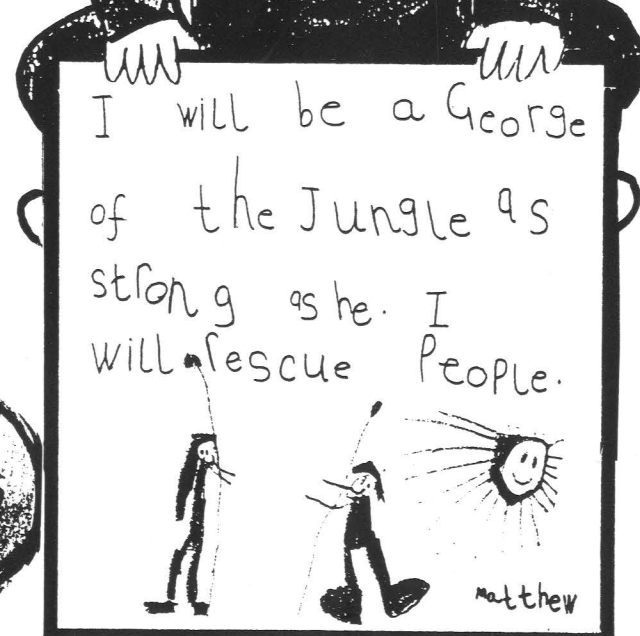 I will be a George
of the Jungle as
strong as he. I
will rescue People.
matthew